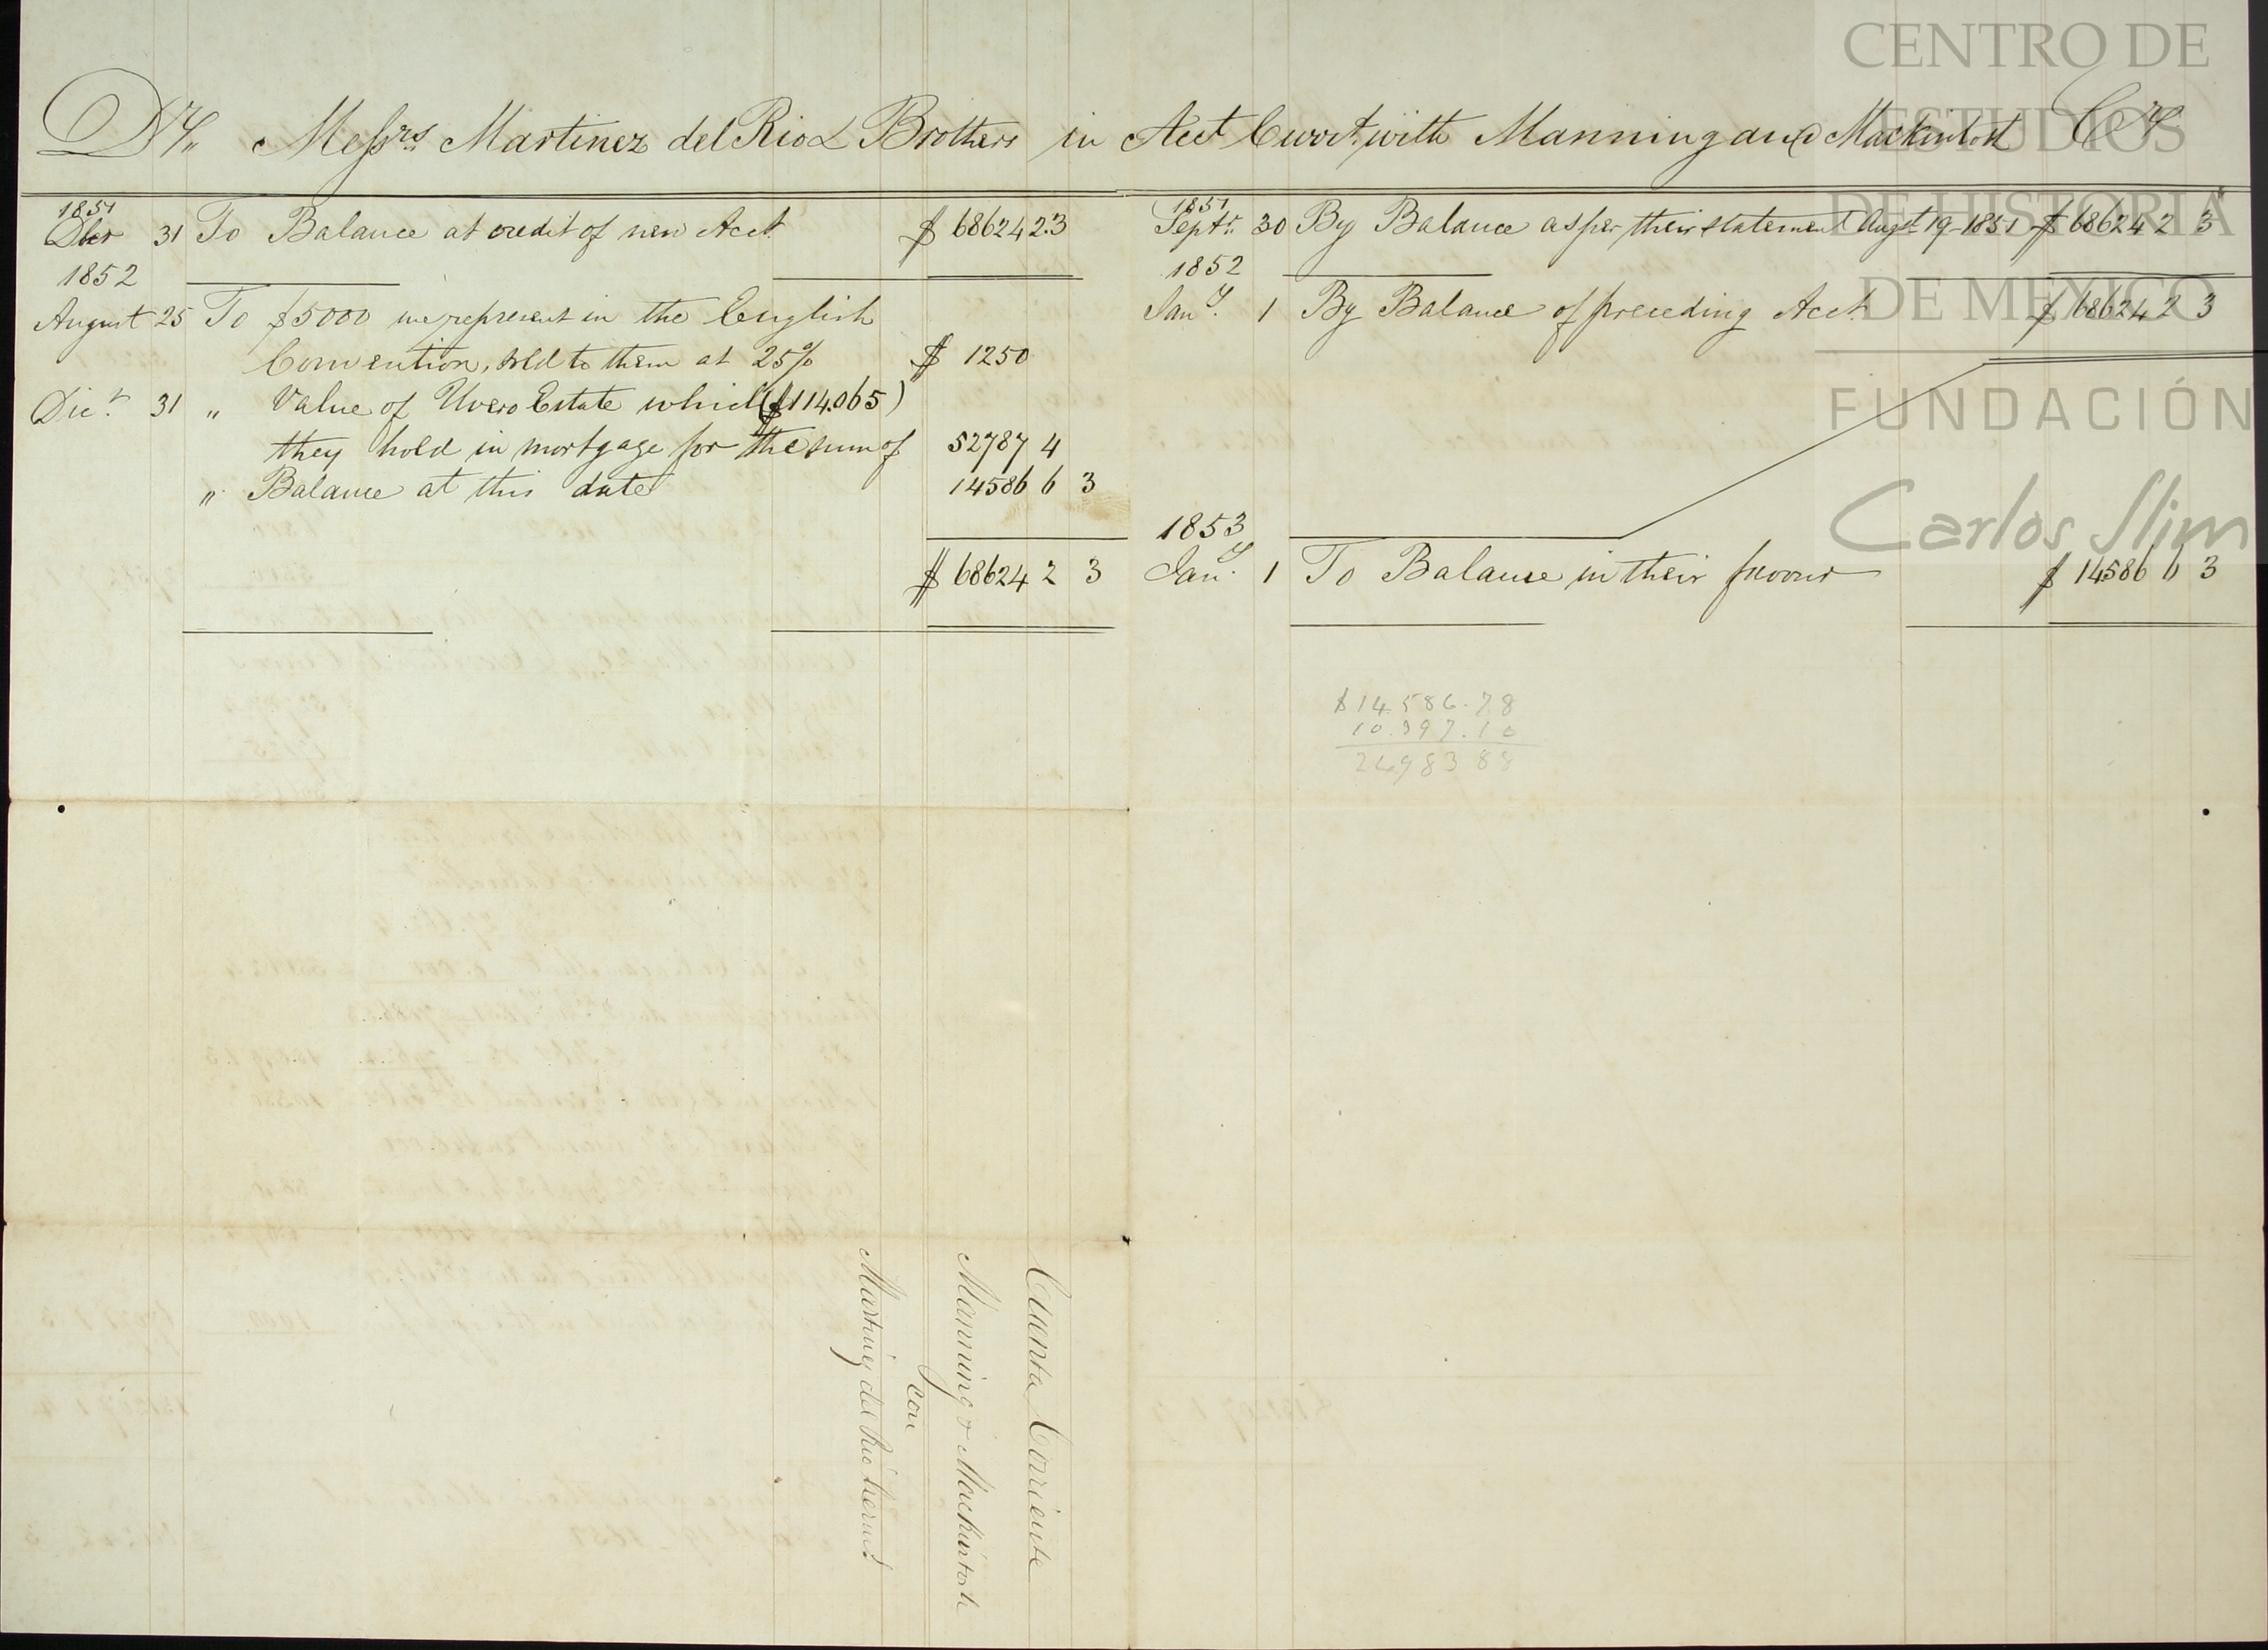 Dr,, Messrs Martinez del Rio & Brothers in Acct Currt. with Manning and Mackintosh Cr
1851
Dber 31 To Balance at credit of new Acct. $ 68624 2.3
1852
August 25 To $5000 we represent in the English
Convention, sold to them at 25% $ 1250
Dicr. 31 " Value of Uvero Estate which ($114.065)
they hold in mortgage for the sum of 52787 4
" Balance at this date 14586 6 3
$ 68624 2 3
1851
Septr. 30 By Balance as per their statement Augt. 19 - 1851 $ 68624 2 3
1852
Jany. 1 By Balance of preceding Acct. $ 68624 2 3
1853
Jany. 1 To Balance in their favour $ 14586 6 3
$14.586.78
10.397.10
24983 88
Cuenta Corriente
Manning & Mackintosh
con
Martinez del Rio hermos.
CENTRO DE
ESTUDIOS
DE HISTORIA
DE MEXICO
FUNDACIÓN
Carlos Slim